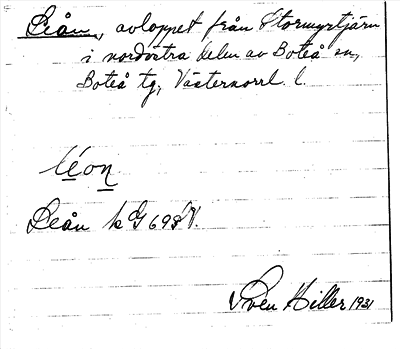 Leån, avloppet från Stormyrtjärn
i nordvästra delen av Boteå sn,
Boteå tg, Västernorrl. l.
léon
Leån k G 698 V.
Sven Hiller 1931